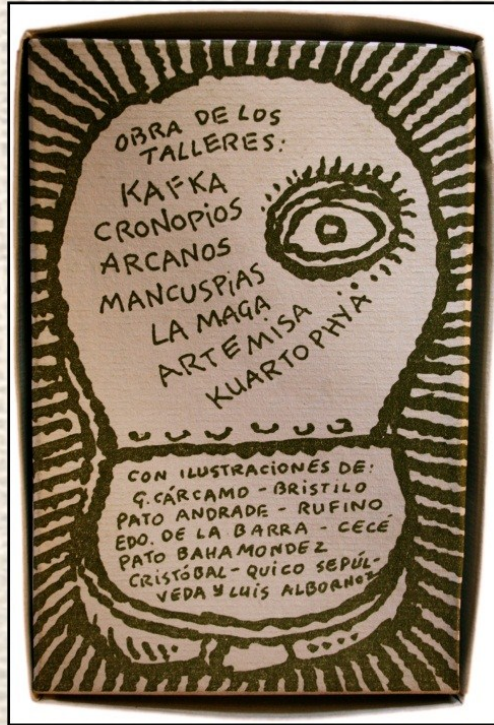 OBRA DE LOS
TALLERES:
KAFKA
CRONOPIOS
ARCANOS
MANCUSPiAS
LA MAGA
ARTEMISA
KUARTOPHYÄ
CON ILUSTRACIONES DE:
G. CÁRCAMO - BRISTILO
PATO ANDRADE - RUFINO
EDO. DE LA BARRA - CECÉ
PATO BAHAMONDEZ
CRISTÓBAL - QUICO SEPÚL-
VEDA Y LUÍS ALBORNOZ